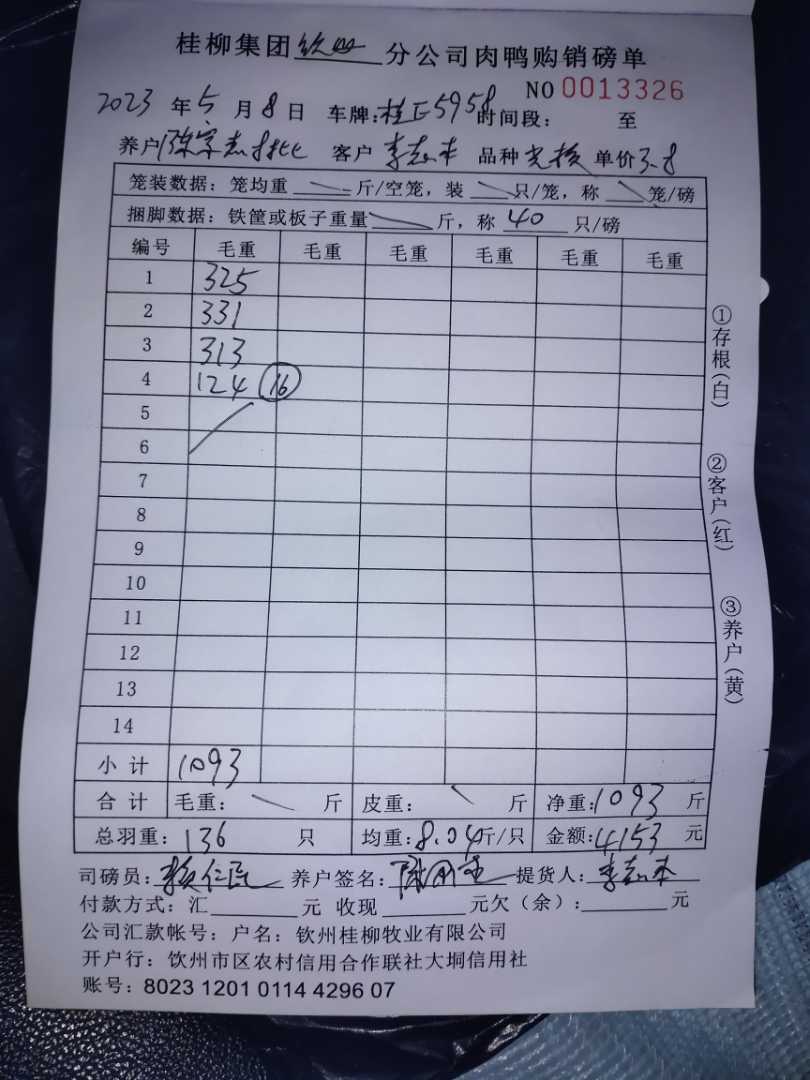 桂柳集团钦州分公司肉鸭购销磅单
NO 0013326
2023 年 5 月 8 日 车牌: 桂 5958 时间段: 至
养户 陈 客户 李 品种 单价 3.8
笼装数据: 笼均重 斤/空笼, 装 只/笼, 称 笼/磅
捆脚数据: 铁筐或板子重量 斤, 称 40 只/磅
编号 毛重 毛重 毛重 毛重 毛重 毛重
1 325
2 331
3 313
4 124 16
5
6
7
8
9
10
11
12
13
14
小计 1093
合计 毛重: 斤 皮重: 斤 净重: 1093 斤
总羽重: 136 只 均重: 8.04 斤/只 金额: 4153 元
司磅员: 仁 养户签名: 陈 提货人: 李
付款方式: 汇 元 收现 元欠(余): 元
公司汇款帐号: 户名: 钦州桂柳牧业有限公司
开户行: 钦州市区农村信用合作联社大垌信用社
账号: 8023 1201 0114 4296 07
①存根(白)
②客户(红)
③养户(黄)